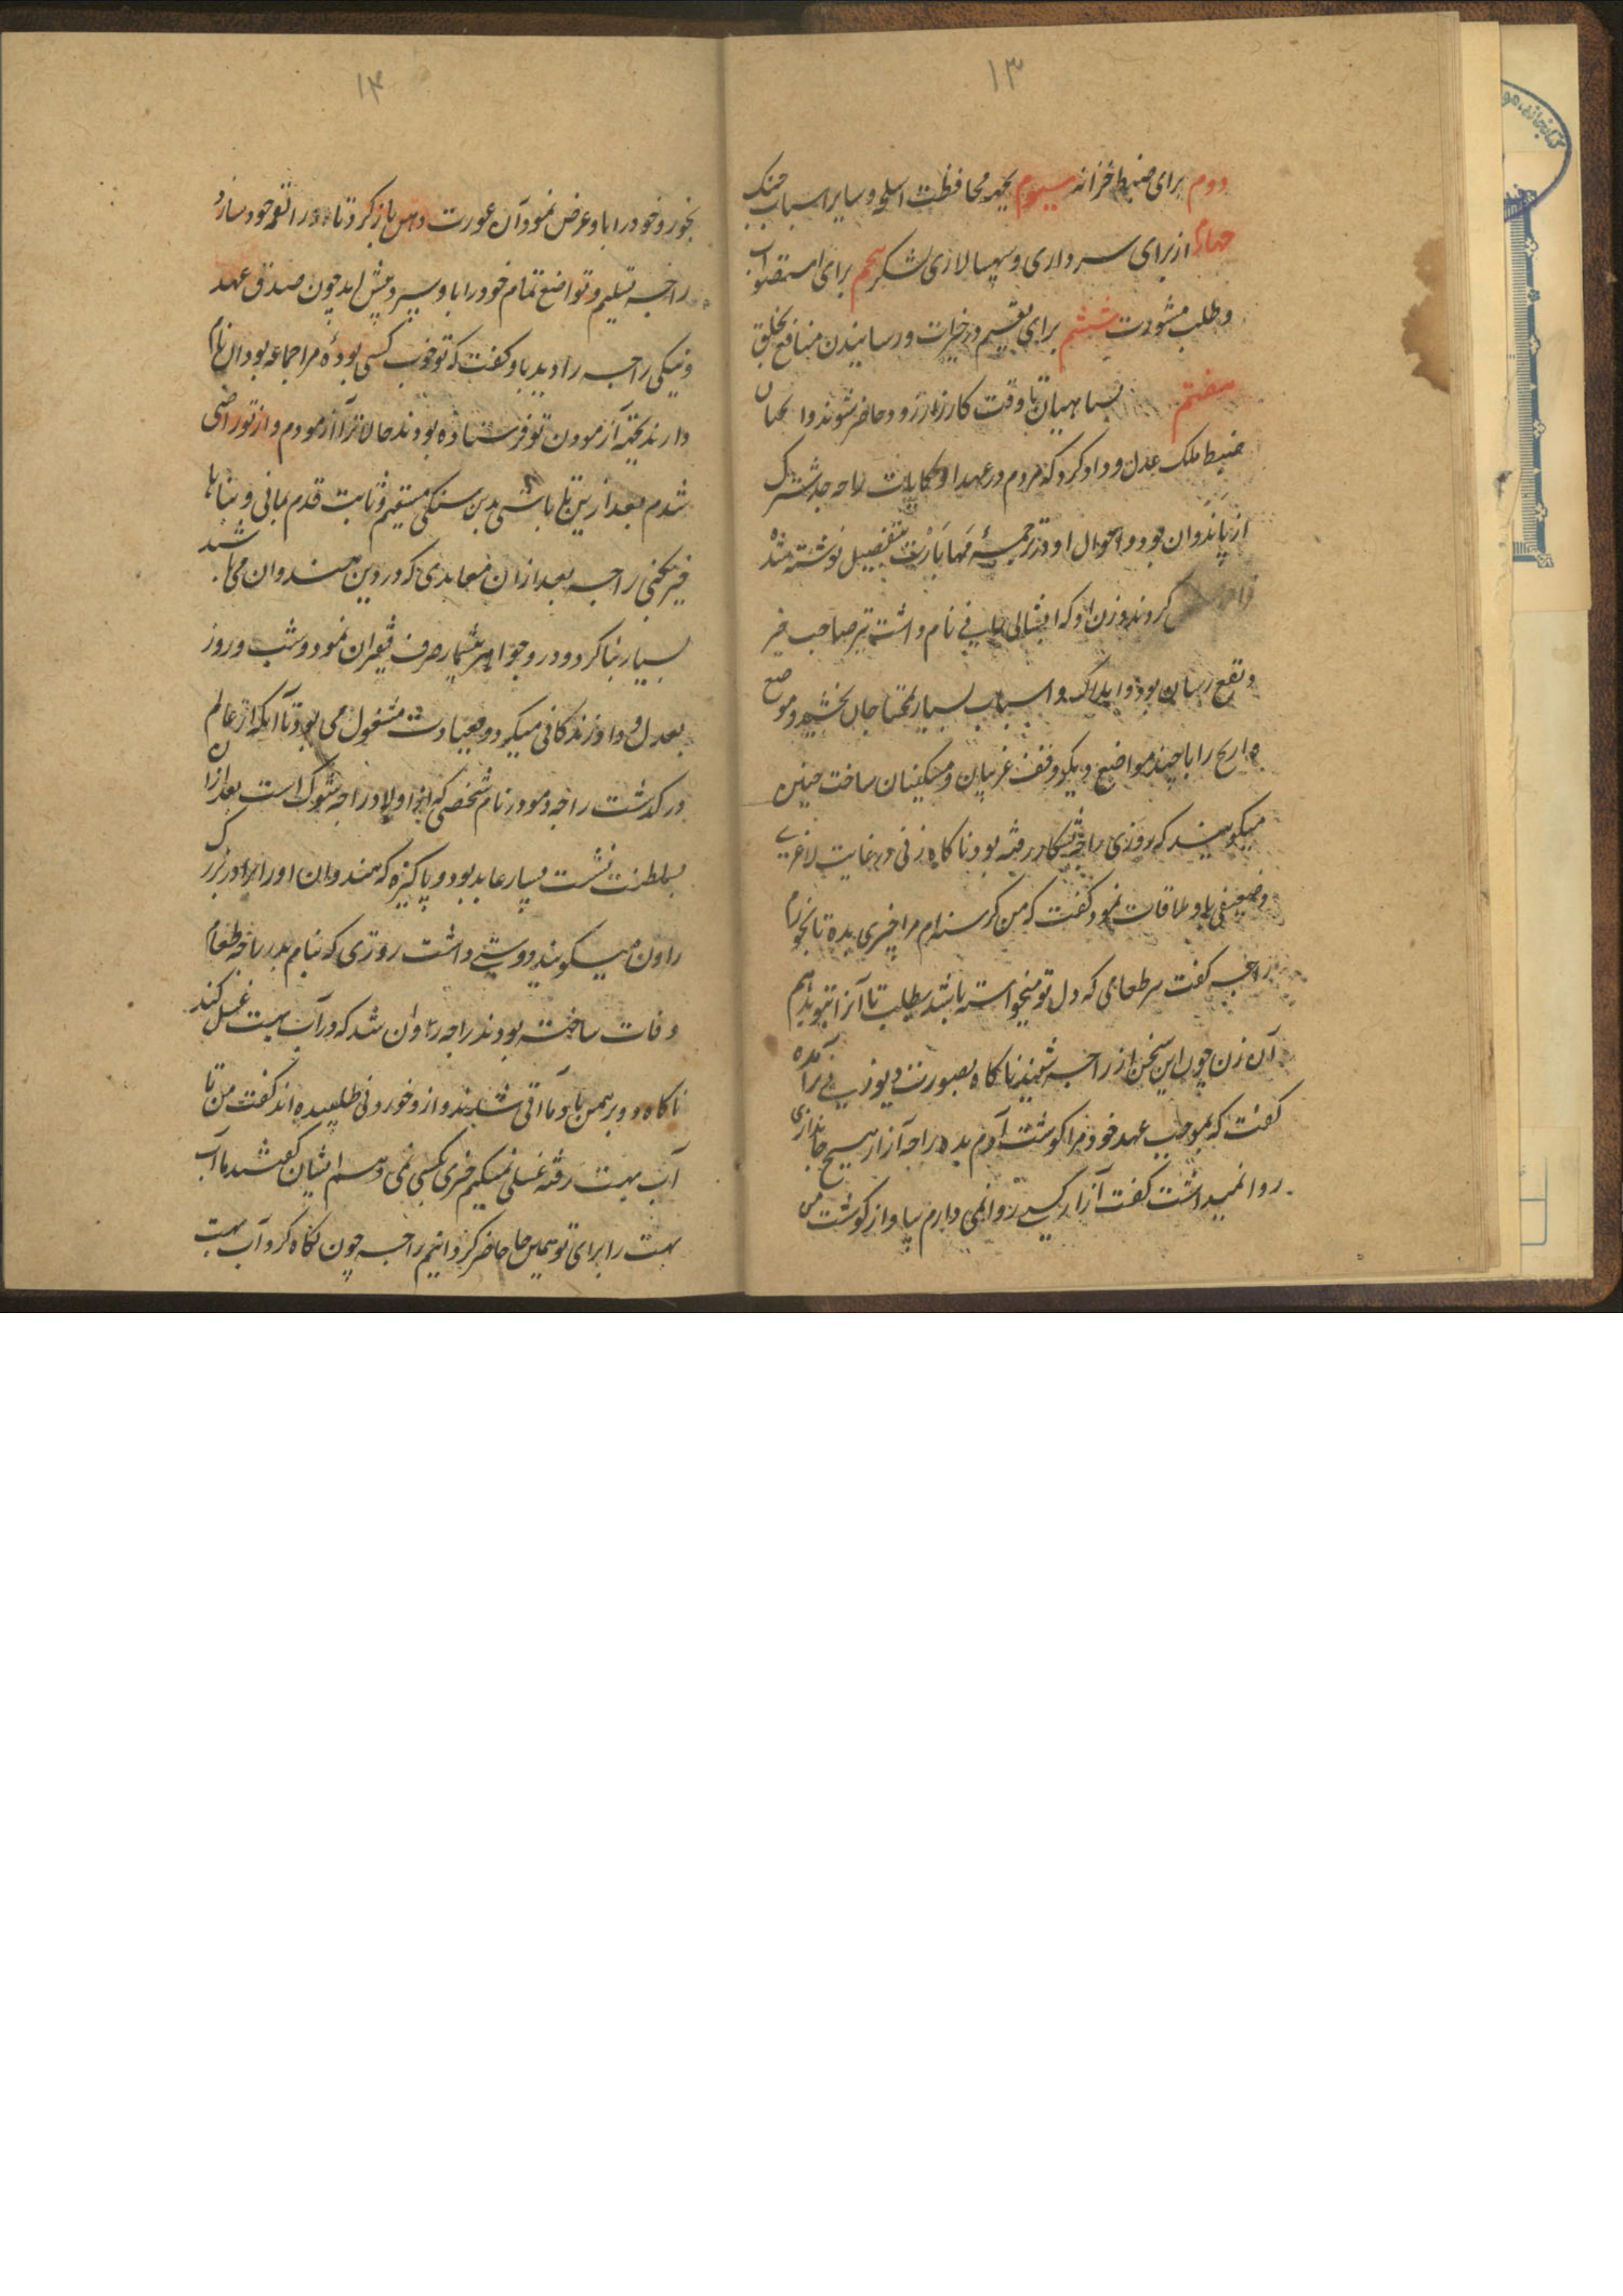 ۱۳
دوم برای ضبط خزانه سیوم بجهة محافظت اسلحه و سایر اسباب جنک
چهارم از برای سرداری و سپهسالاری لشکر پنجم برای استصواب
و طلب مشورت ششم برای تقسیم خیرات و رسانیدن منافع بخلق
هفتم سپاهیان تا وقت کارزار زود حاضر شوند و
ضبط ملک عدل و داد کرد که مردم در عهد او حکایات راجه
از پاندوان بود و احوال او در ترجمهٔ مهابارت بتفصیل نوشته شده
کردند و زن او که نام داشت نیز صاحب خیر
و نفع رسان بود و املاک و اسباب بسیار بمحتاجان بخشید و موضع
را با چند مواضع دیگر وقف غریبان و مسکینان ساخت چنین
میکویند که روزی راجه بشکار رفته بود ناکاه زنی در غایت لاغری
و ضعیفی باو ملاقات نمود کفت که من کرسنه ام مرا چیزی بده تا بخورم
راجه کفت هر طعامی که دل تو میخواسته باشد بطلب تا آنرا بتو بدهم
آن زن چون این سخن از راجه شنید ناکاه بصورت دیوزنی برآمده
کفت که بموجب عهد خود مرا کوشت آدم بده راجه آزار هیچ جانداری
روا نمیداشت کفت آزار کسی روا نمی دارم بیا و از کوشت من
۱۴
بخور و خود را باو عرض نمود آن عورت دهن باز کرد تا او را لقمه خود سازد
راجه تسلیم و تواضع تمام خود را باو سپرد و پیش آمد چون صدق عهد
و نیکی راجه را دید باو کفت که تو خوب کسی بودهٔ مرا جماعه بودان نام
دارند بجهة آزمودن تو فرستاده بودند حالا ترا آزمودم و از تو راضی
شدم بعد ازین باشی بدین سنکی مستقیم و ثابت قدم بمانی و بناها
خیر بکنی راجه بعد ازان معابدی که در دین هندوان می باشد
بسیار بنا کرد و در و جواهر بیشمار صرف فقیران نمود و شب و روز
بعدل و داد زندکانی میکرد و بعبادت مشغول می بود تا آنکه از عالم
درکذشت راجه دمودر نام شخصی که از اولاد راجه شوک است بعد ازان
بسلطنت نشست بسیار عابد بود و پاکیزه که هندوان او را برادر بزرک
راون میکویند دوستی داشت روزی که بنام پدر راجه طعام
وفات ساخته بودند راجه روان شد که در آب بهت غسل کند
ناکاه دو برهمن باو ملاقی شدند و ازو خوردنی طلبیده اند کفت من تا
آب بهت رفته غسل نمیکنم چیزی بکسی نمی دهم ایشان کفتند ما آب
بهت را برای تو همین جا حاضر کردانیم راجه چون نکاه کرد آب بهت